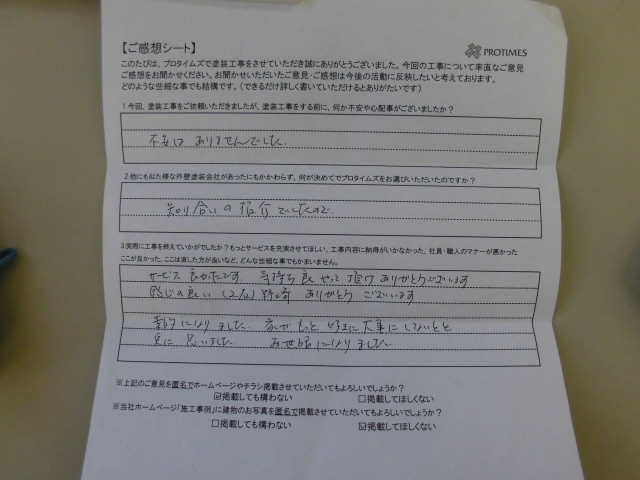 【ご感想シート】
PROTIMES
このたびは、プロタイムズで塗装工事をさせていただき誠にありがとうございました。今回の工事について率直なご意見
ご感想をお聞かせください。お聞かせいただいたご意見・ご感想は今後の活動に反映したいと考えております。
どのような些細な事でも結構です。（できるだけ詳しく書いていただけるとありがたいです）
1.今回、塗装工事をご依頼いただきましたが、塗装工事をする前に、何か不安や心配事がございましたか？
不安は ありませんでした.
2.他にも似た様な外壁塗装会社があったにもかかわらず、何が決めてでプロタイムズをお選びいただいたのですか？
知り合いの 紹介でしたので
3.実際に工事を終えていかがでしたか？もっとサービスを充実させてほしい、工事内容に納得がいかなかった、社員・職人のマナーが悪かった
ここが良かった、ここは直した方が良いなど、どんな些細な事でもかまいません。
サービス 良かったです. 気持ち良 やって 頂け ありがとうございます
感じの良い ありがとう ございます
なりました. 家が もっと 好きに 大事に しないとと
更に 思いました. お世話になりました.
※上記のご意見を匿名でホームページやチラシ掲載させていただいてもよろしいでしょうか？
☑掲載しても構わない □掲載してほしくない
※当社ホームページ「施工事例」に建物のお写真を匿名で掲載させていただいてもよろしいでしょうか？
□掲載しても構わない ☑掲載してほしくない